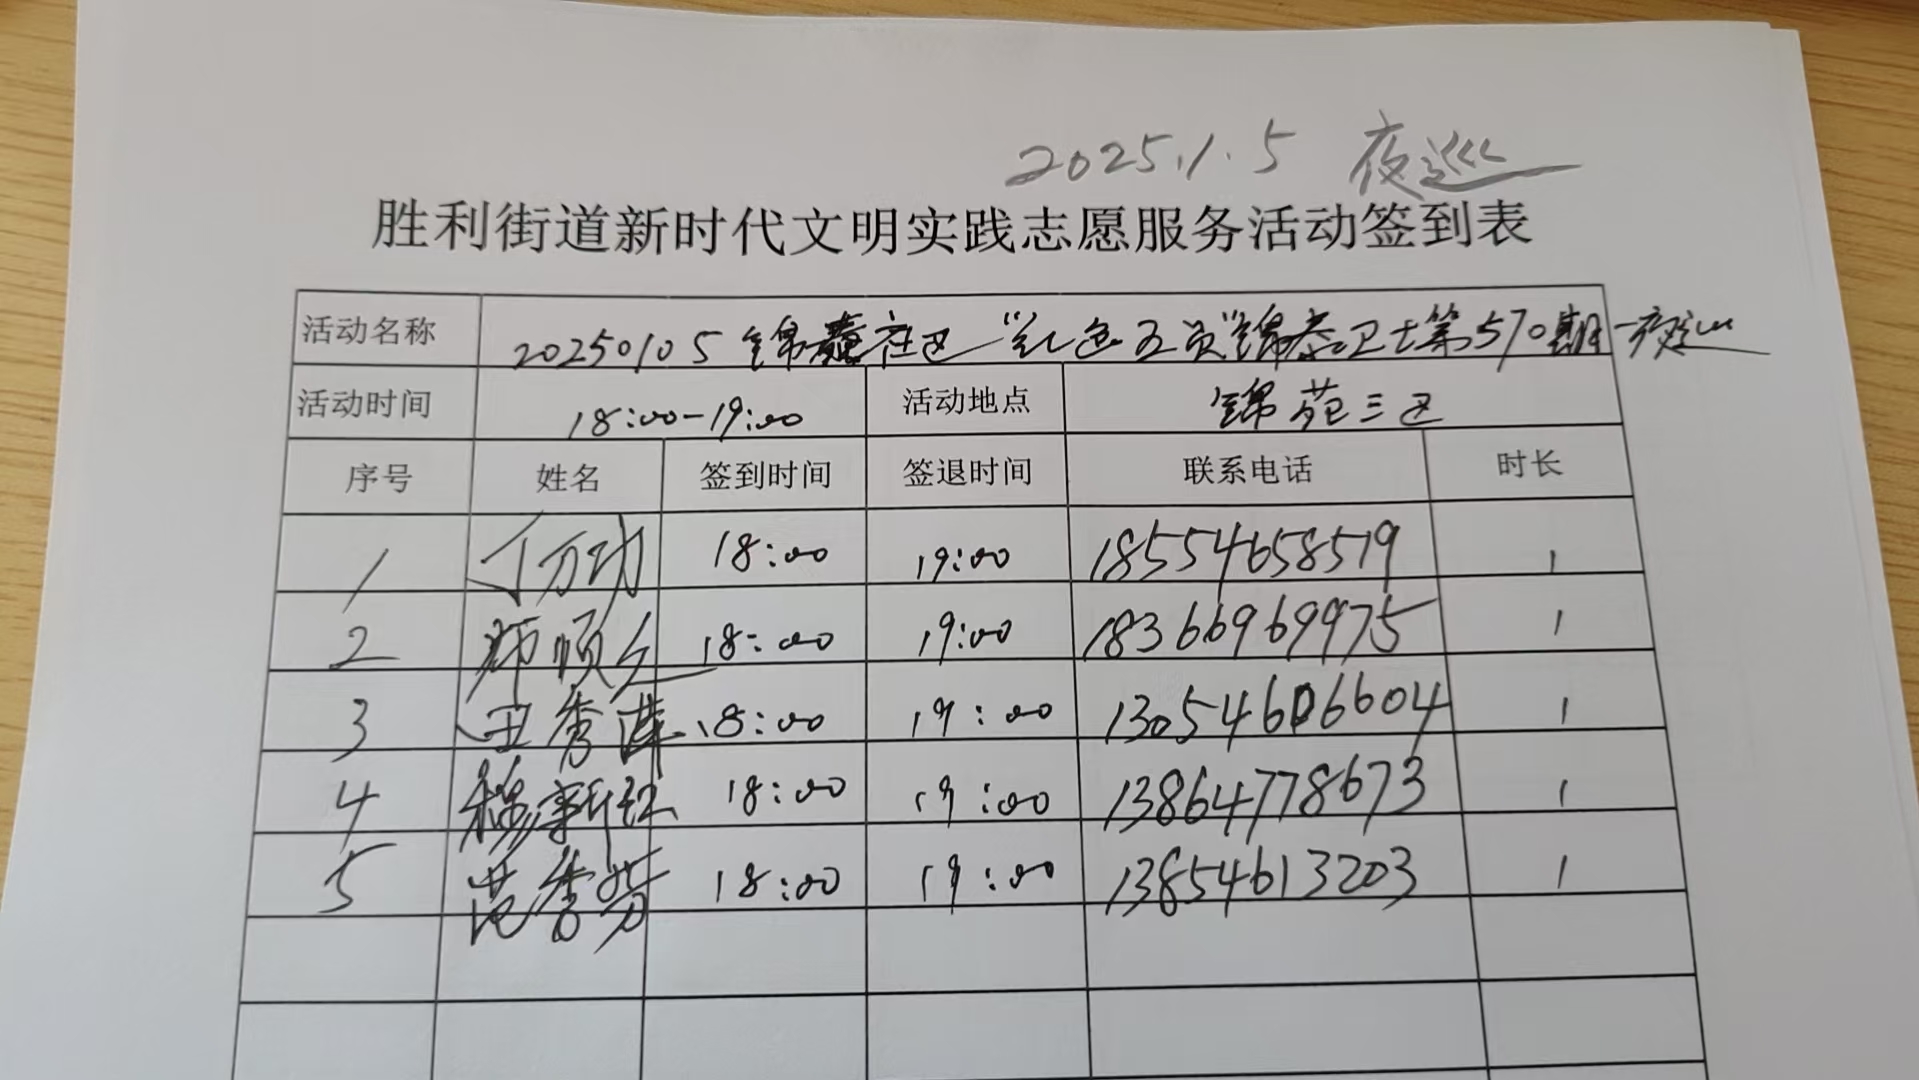 2025.1.5 夜巡
胜利街道新时代文明实践志愿服务活动签到表
活动名称 20250105 锦泰社区"红色五员"锦泰卫士第570期-夜巡
活动时间 18:00-19:00 活动地点 锦苑三区
序号 姓名 签到时间 签退时间 联系电话 时长
1 丁万动 18:00 19:00 18554658519 1
2 18:00 19:00 18366969975 1
3 王秀萍 18:00 19:00 13054606604 1
4 穆新红 18:00 19:00 13864778673 1
5 范秀芬 18:00 19:00 13854613203 1